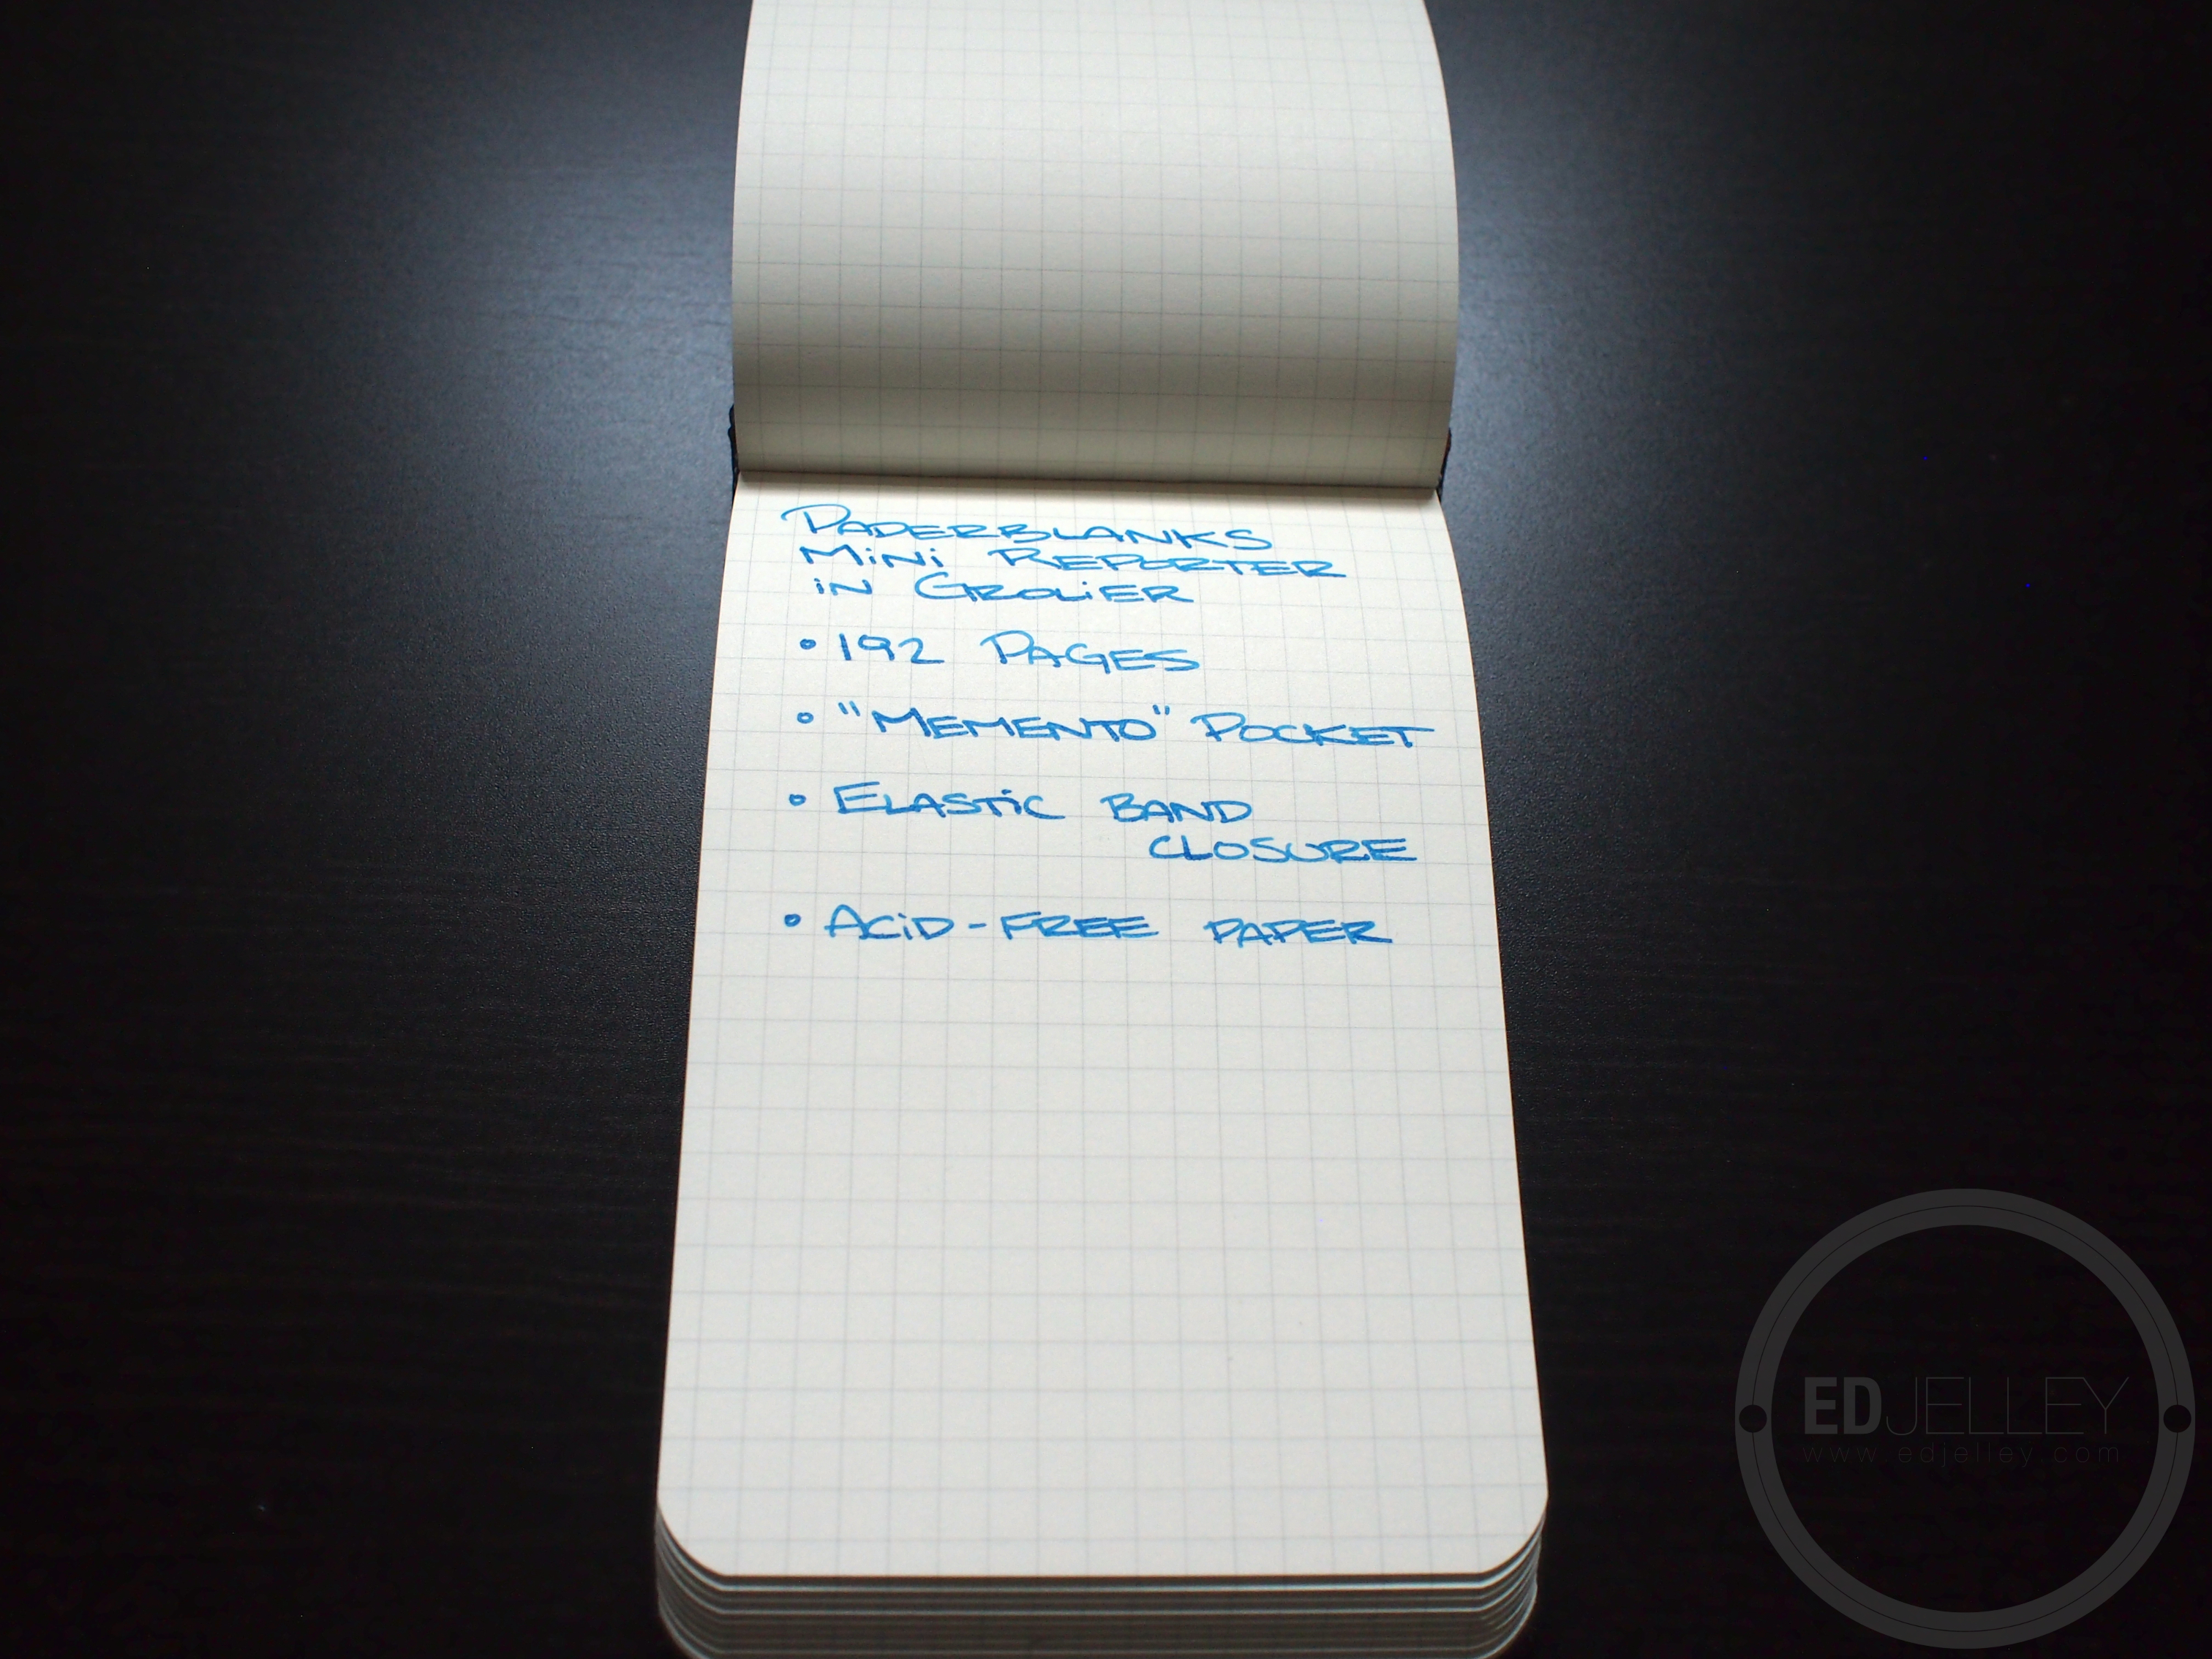 PAPERBLANKS
MiNi REPORTER
iN GROLiER
• 192 PAGES
• "MEMENTO" POCKET
• ELASTiC BAND
CLOSURE
• ACiD-FREE PAPER
EDJELLEY
www.edjelley.com